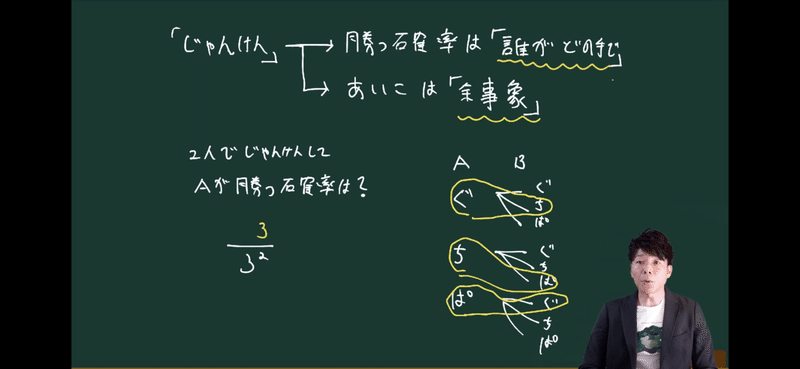 「じゃんけん」 → 勝つ確率は「誰がどの手で」
→ あいこは「余事象」
2人でじゃんけんして
Aが勝つ確率は?
3
3²
A B
ぐ ぐ
ち
ぱ
ち ぐ
ち
ぱ
ぱ ぐ
ち
ぱ